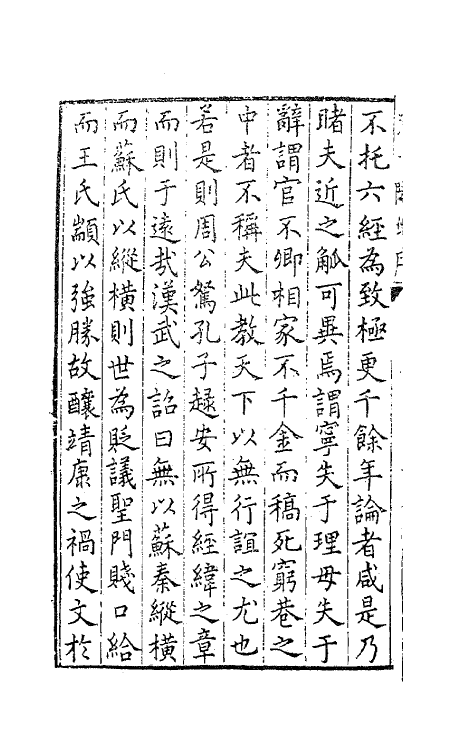 不托六經為致極更千餘年論者咸是乃
睹夫近之觚可異焉謂寧失于理毋失于
辭謂官不卿相家不千金而稿死窮巷之
中者不稱夫此教天下以無行誼之尤也
若是則周公駑孔子趦安所得經緯之章
而則于遠哉漢武之詔曰無以蘇秦縱橫
而蘇氏以縱橫則世為貶議聖門賤口給
而王氏顓以強勝故釀靖康之禍使文於